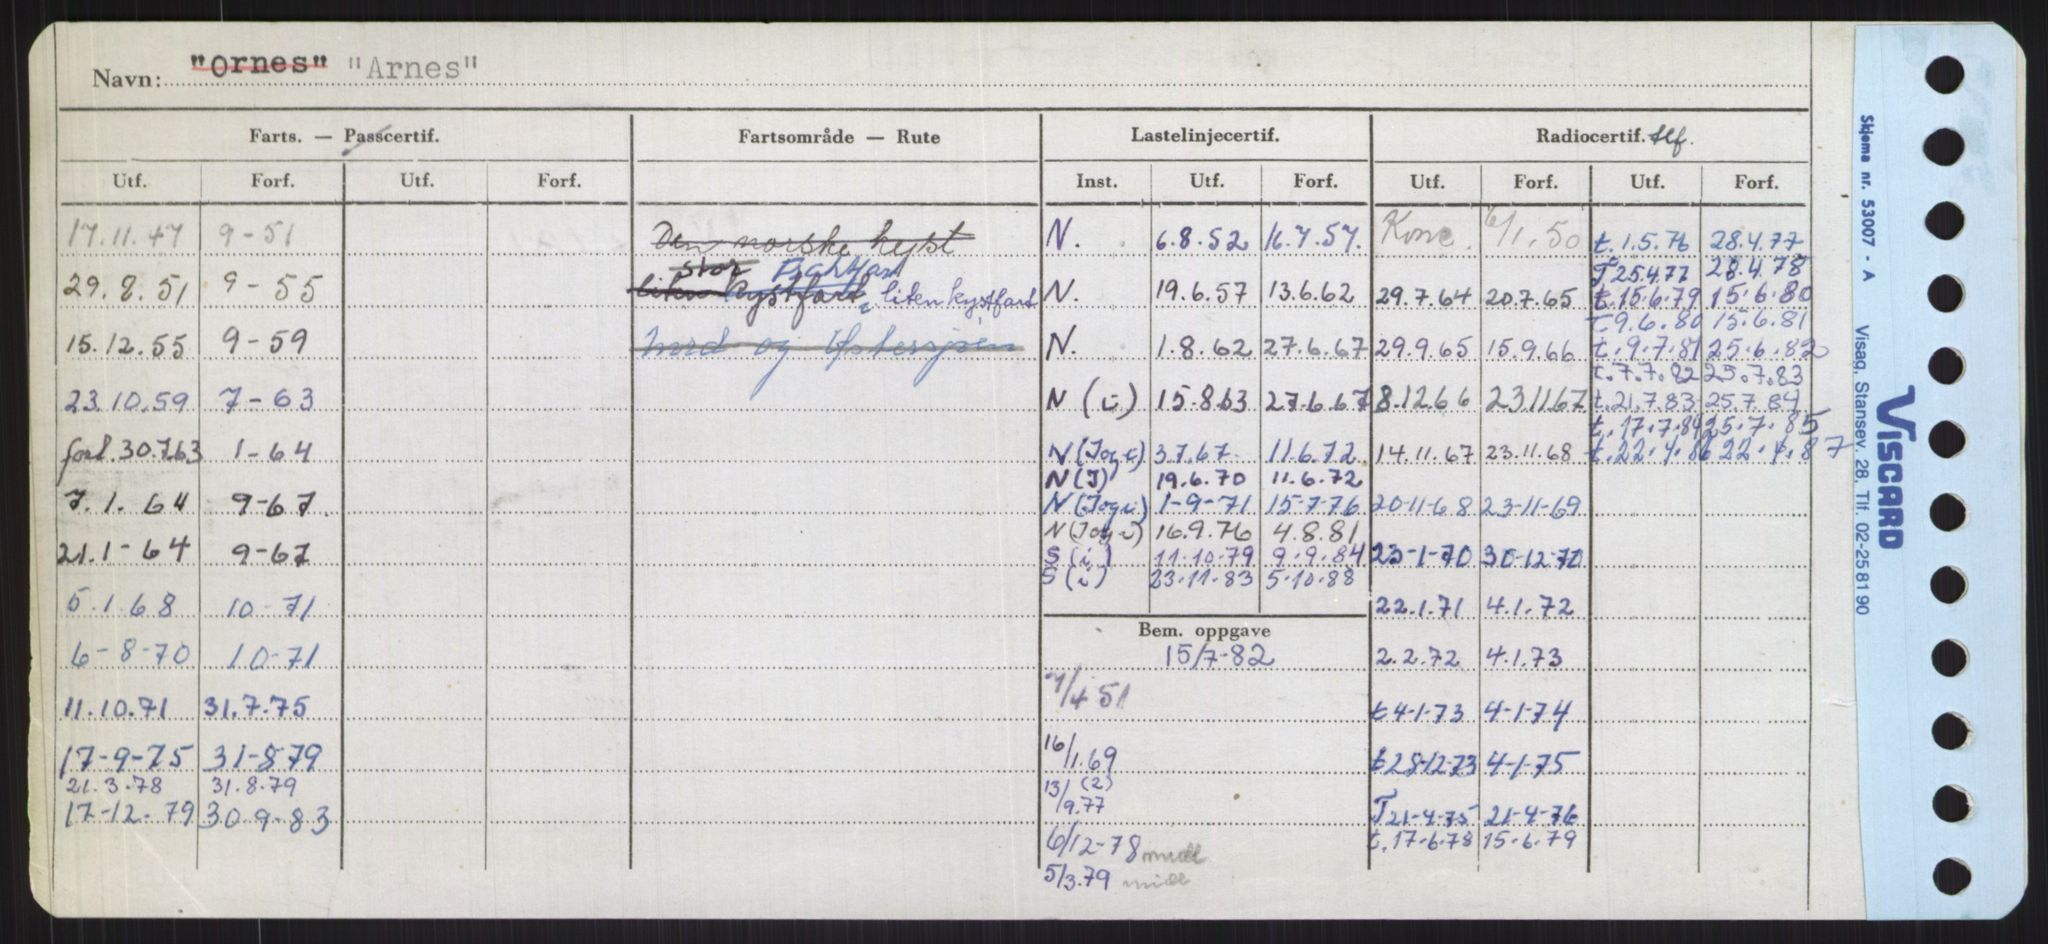 Navn: "Ornes" "Arnes"
Farts. — Passcertif. Fartsområde — Rute Lastelinjecertif. Radiocertif. tlf.
Utf. Forf. Utf. Forf. Inst. Utf. Forf. Utf. Forf. Utf. Forf.
17.11.47 9-51 Den norske kyst N. 6.8.52 16.7.57. Konc. 6/1.50 t.1.5.76 28.4.77
stor Fraktfart T 25.4.77 28.4.78
29.8.51 9-55 liten kystfart, liten kystfart N. 19.6.57 13.6.62 29.7.64 20.7.65 t.15.6.79 15.6.80
T.9.6.80 15.6.81
15.12.55 9-59 Nord og Østersjøen N. 1.8.62 27.6.67 29.9.65 15.9.66 t.9.7.81 25.6.82
t.7.7.82 25.7.83
23.10.59 7-63 N (i) 15.8.63 27.6.67 8.12.66 23.11.67 t.21.7.83 25.7.84
t.17.7.84 25.7.85
forl.30.7.63 1-64 N (I og i) 3.7.67 11.6.72 14.11.67 23.11.68 t.22.4.86 22.4.87
N (I) 19.6.70 11.6.72
7.1.64 9-67. N (I og i) 1-9-71 15-7-76 20-11-68 23-11-69
N (I og i) 16.9.76 4.8.81
21.1-64 9-67 S (i) 11.10.79 9.9.84 23-1-70 30-12-70
S (i) 23.11.83 5.10.88
5.1.68 10-71 22.1.71 4.1.72
Bem. oppgave
6-8-70 10-71 15/7-82 2.2.72 4.1.73
11.10.71 31.7.75 /4 51 t 4-1-73 4-1-74
17-9-75 31-8-79 16/1.69 t 28-12-73 4-1-75
21.3.78 31.8.79 13/9.77 (2)
17-12-79 30.9-83 T 21-4-75 21-4-76
6/12-78 midl t.17.6.78 15.6.79
5/3.79 midl
Skjema nr. 53007 - A Visag, Stansev. 28, Tlf. 02-25 81 90
VISCARD